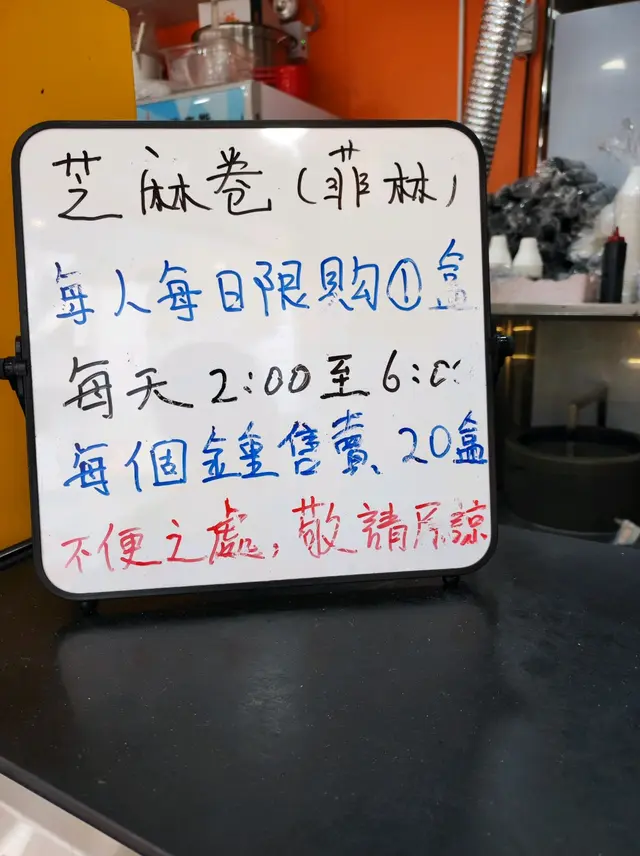 芝麻卷(菲林)
每人每日限購①盒
每天2:00至6:0
每個鐘售賣20盒
不便之處,敬請原諒